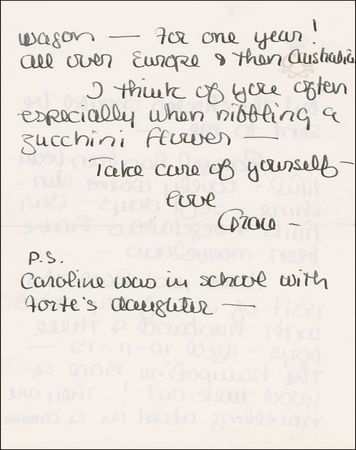 wagon — For one year!
all over Europe & then Australia
I think of you often
especially when nibbling a
zucchini flower —
Take care of yourself —
Love
Grace —
P.S.
Caroline was in school with
Forte's daughter —